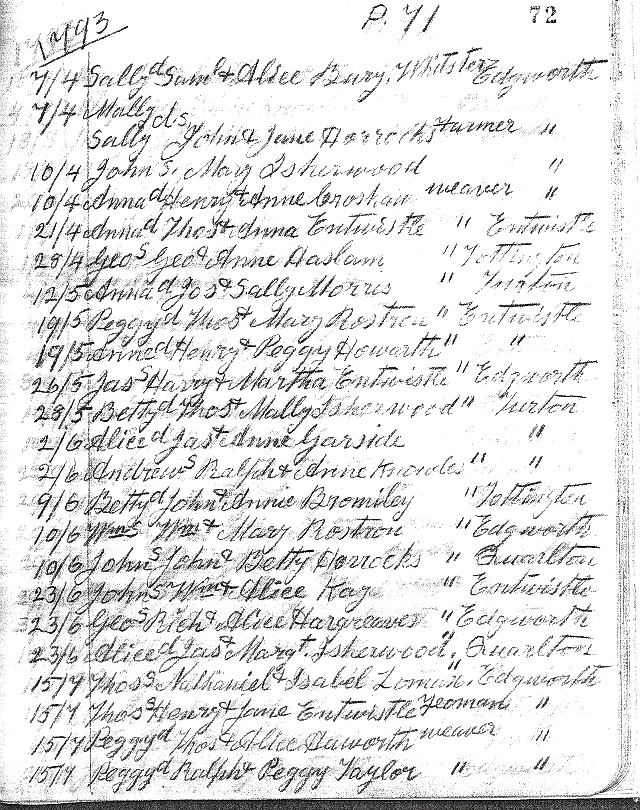 P. 71 72
1793
7/4 Sally d Saml & Alice Bury, Whitster Edgworth
7/4 Mally
Sally ds John & Jane Horrocks Farmer "
10/4 John s. Mary Isherwood "
10/4 Anna d Henry & Anne Croshaw weaver "
21/4 Anna d Thos & Anna Entwistle " Entwistle
28/4 Geo s Geo & Anne Haslam " Tottington
12/5 Anna d Jos & Sally Morris " Turton
19/5 Peggy d Thos & Mary Rostron " Entwistle
19/5 Anne d Henry & Peggy Howarth " "
26/5 Jas s Harry & Martha Entwistle " Edgworth
28/5 Betty d Thos & Mally Isherwood " Turton
2/6 Alice d Jas & Anne Garside "
2/6 Andrew s Ralph & Anne Knowles " "
9/6 Betty d John & Annie Bromiley " Tottington
10/6 Wm s Wm & Mary Rostron " Edgworth
10/6 John s John & Betty Horrocks " Quarlton
23/6 John s Wm & Alice Kay " Entwistle
23/6 Geo s Rich & Alice Hargreaves " Edgworth
23/6 Alice d Jas & Margt Isherwood " Quarlton
15/7 Thos s Nathaniel & Isabel Lomax " Edgworth
15/7 Thos s Henry & Jane Entwistle Yeoman "
15/7 Peggy d Thos & Alice Haworth weaver "
15/7 Peggy d Ralph & Peggy Taylor " "